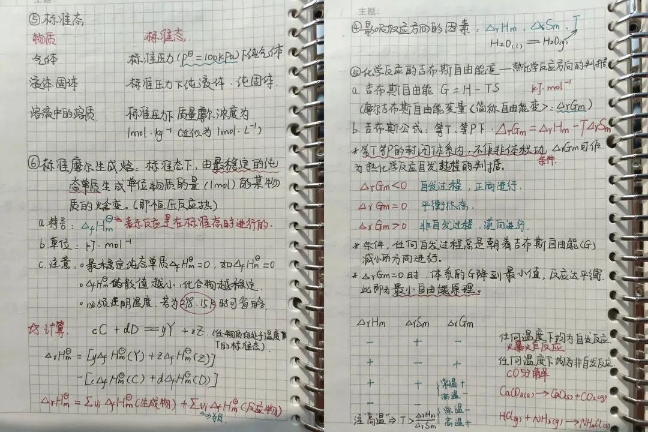 ⑤标准态
物质 标准态
气体 标准压力(p^θ=100kPa)下纯气体
液体固体 标准压力下纯液体、纯固体
溶液中的溶质 标准压力下质量摩尔浓度为
1mol·kg⁻¹(近似为1mol·L⁻¹)
⑥标准摩尔生成焓:标准态下,由最稳定的纯
态单质生成单位物质的量(1mol)的某物
质的焓变。(即恒压反应热)
a.符号:ΔfHm^θ 表示反应是在标准态时进行的.
b.单位:kJ·mol⁻¹
c.注意:最稳定纯态单质ΔfHm^θ=0,如ΔfHm^θ=0
ΔfHm^θ代数值越小,化合物越稳定.
必须注明温度,若为298.15K时可省略
☆计算: cC+dD══yY+zZ
T的标准态)
ΔrHm^θ=[yΔfHm^θ(Y)+zΔfHm^θ(Z)]
-[cΔfHm^θ(C)+dΔfHm^θ(D)]
ΔrHm^θ=ΣυiΔfHm^θ(生成物)+ΣυiΔfHm^θ(反应物)
主题:
④影响反应方向的因素:ΔrHm、ΔrSm、T
H₂O(l)══H₂O(g)
⑤化学反应的吉布斯自由能变—热化学反应方向的判据
a.吉布斯自由能 G=H-TS kJ·mol⁻¹
(摩尔吉布斯自由能变量(简称自由能变):ΔrGm)
b.吉布斯公式:等T、等P下 ΔrGm=ΔrHm-TΔrSm
*等T等P的封闭体系内,不作非体积功,ΔrGm可作
条件
为热化学反应自发过程的判据.
ΔrGm<0 自发过程,正向进行.
ΔrGm=0 平衡状态.
ΔrGm>0 非自发过程,逆向进行.
*条件:任何自发过程总是朝着吉布斯自由能(G)
减小的方向进行.
*ΔrGm=0时,体系的G降到最小值,反应达平衡
此即为最小自由能原理.
ΔrHm ΔrSm ΔrGm
- + - 任何温度下均为自发反应
+ - + 任何温度下均为非自发反应
CO分解
+ + 常温+
高温- CaCO₃(s)→CaO(s)+CO₂(g)
- - 常温-
高温+ HCl(g)+NH₃(g)→NH₄Cl(s)
注:"高温"⇒T>ΔrHm/ΔrSm